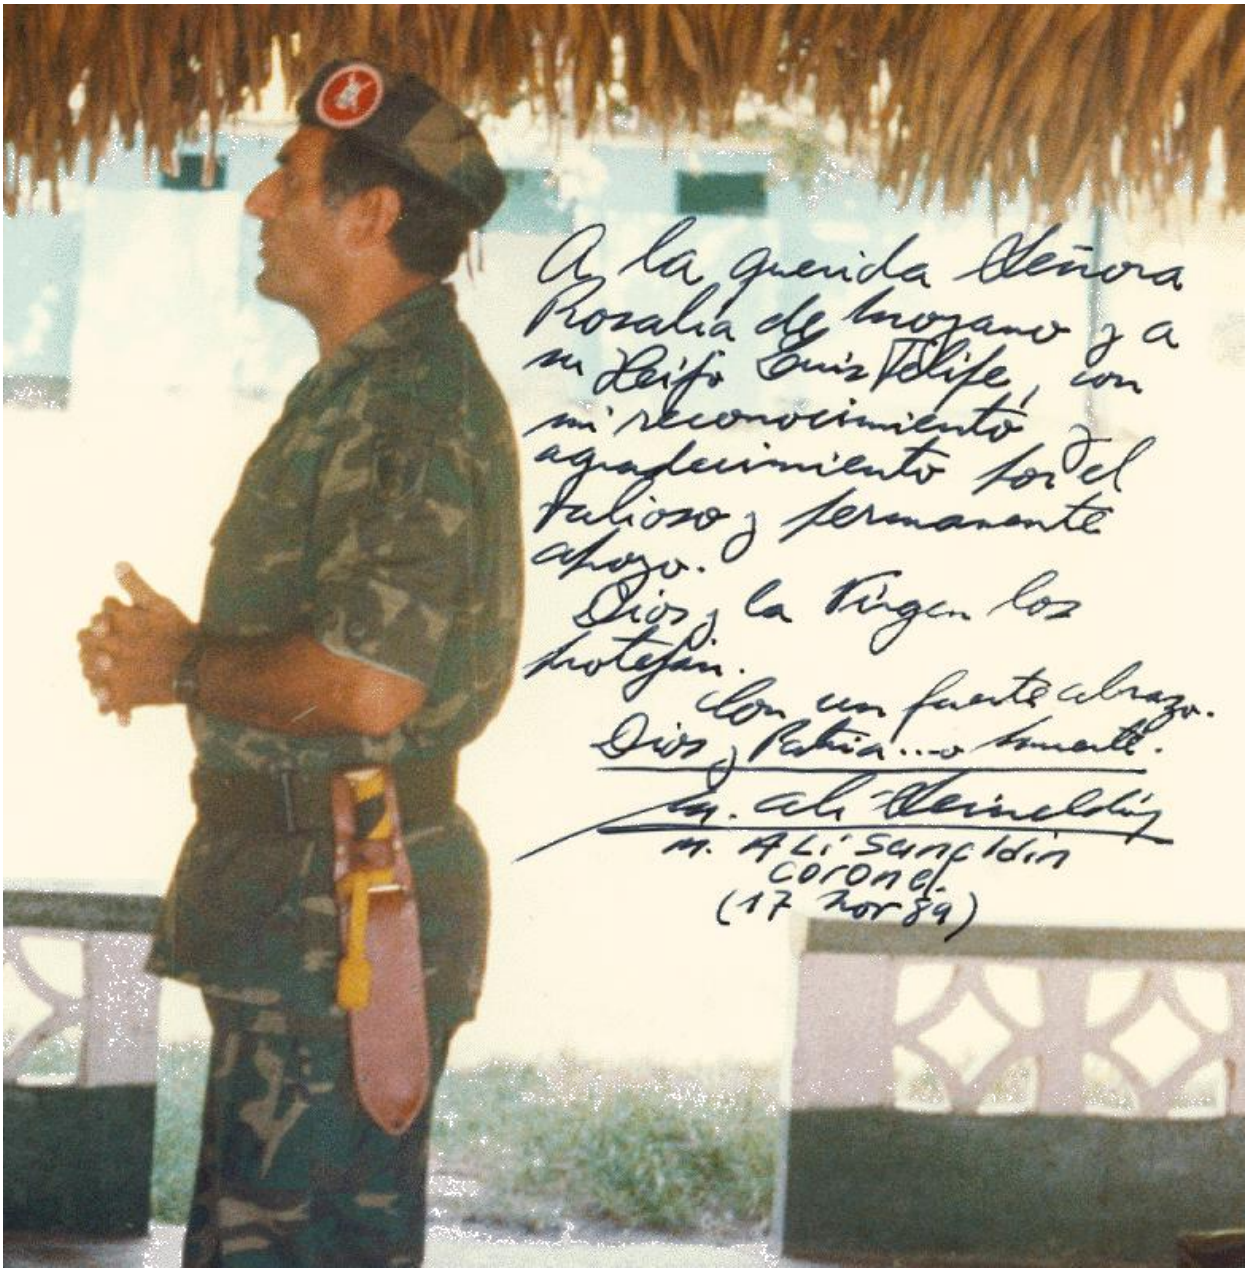 A la querida Señora
Rosalía de y a
su Luis Felipe, con
mi reconocimiento y
agradecimiento por el
valioso y permanente
apoyo.
Dios y la Virgen los
protejan.
Con un fuerte abrazo.
Dios y Patria...o muerte.
M. Ali Seineldín
M. ALi Seineldin
Coronel
(17 Nov 89)